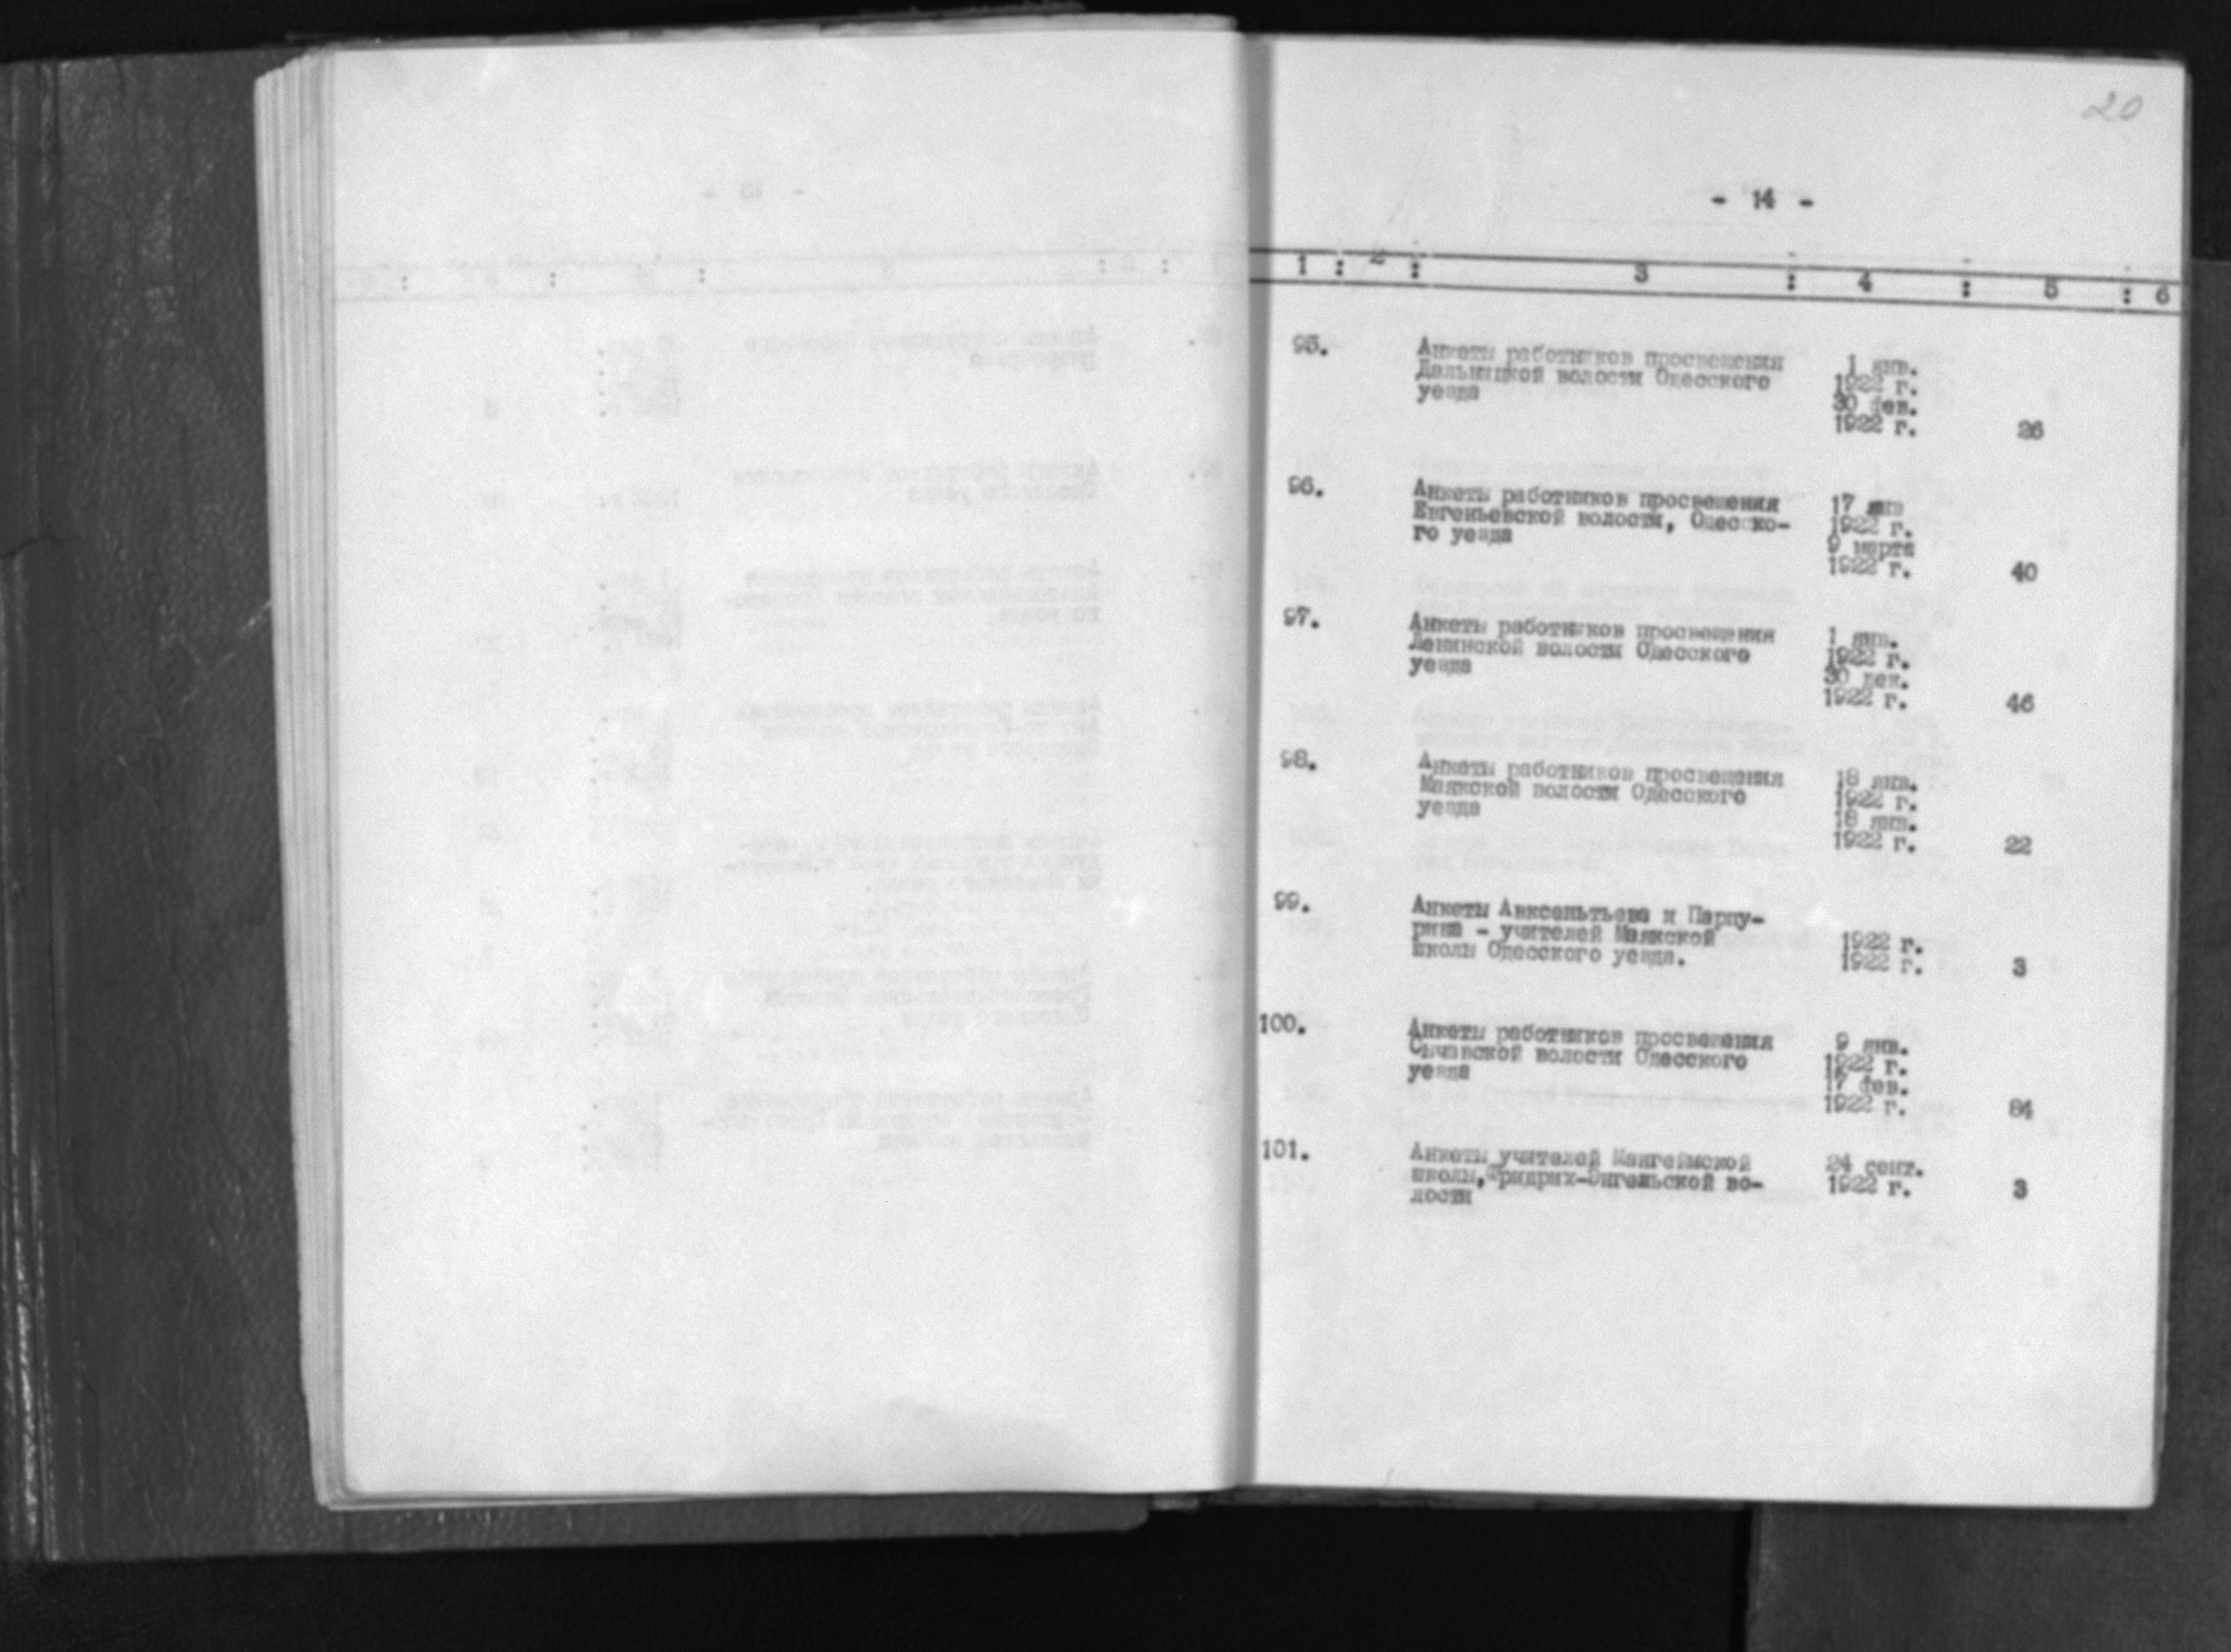 20
- 14 -
1 : 2 : 3 : 4 : 5 : 6
95. Анкеты работников просвещения 1 янв.
Дальницкой волости Одесского 1922 г.
уезда 30 фев.
1922 г. 26
96. Анкеты работников просвещения 17 янв
Евгеньевской волости, Одесско- 1922 г.
го уезда 9 марта
1922 г. 40
97. Анкеты работников просвещения 1 янв.
Ленинской волости Одесского 1922 г.
уезда 30 дек.
1922 г. 46
98. Анкеты работников просвещения 18 янв.
Маякской волости Одесского 1922 г.
уезда 18 янв.
1922 г. 22
99. Анкеты Авксентьева и Парпу-
рина - учителей Маякской 1922 г.
школы Одесского уезда. 1922 г. 3
100. Анкеты работников просвещения 9 янв.
Сычавской волости Одесского 1922 г.
уезда 17 фев.
1922 г. 84
101. Анкеты учителей Мангеймской 24 сент.
школы, Фридрих-Энгельской во- 1922 г. 3
лости